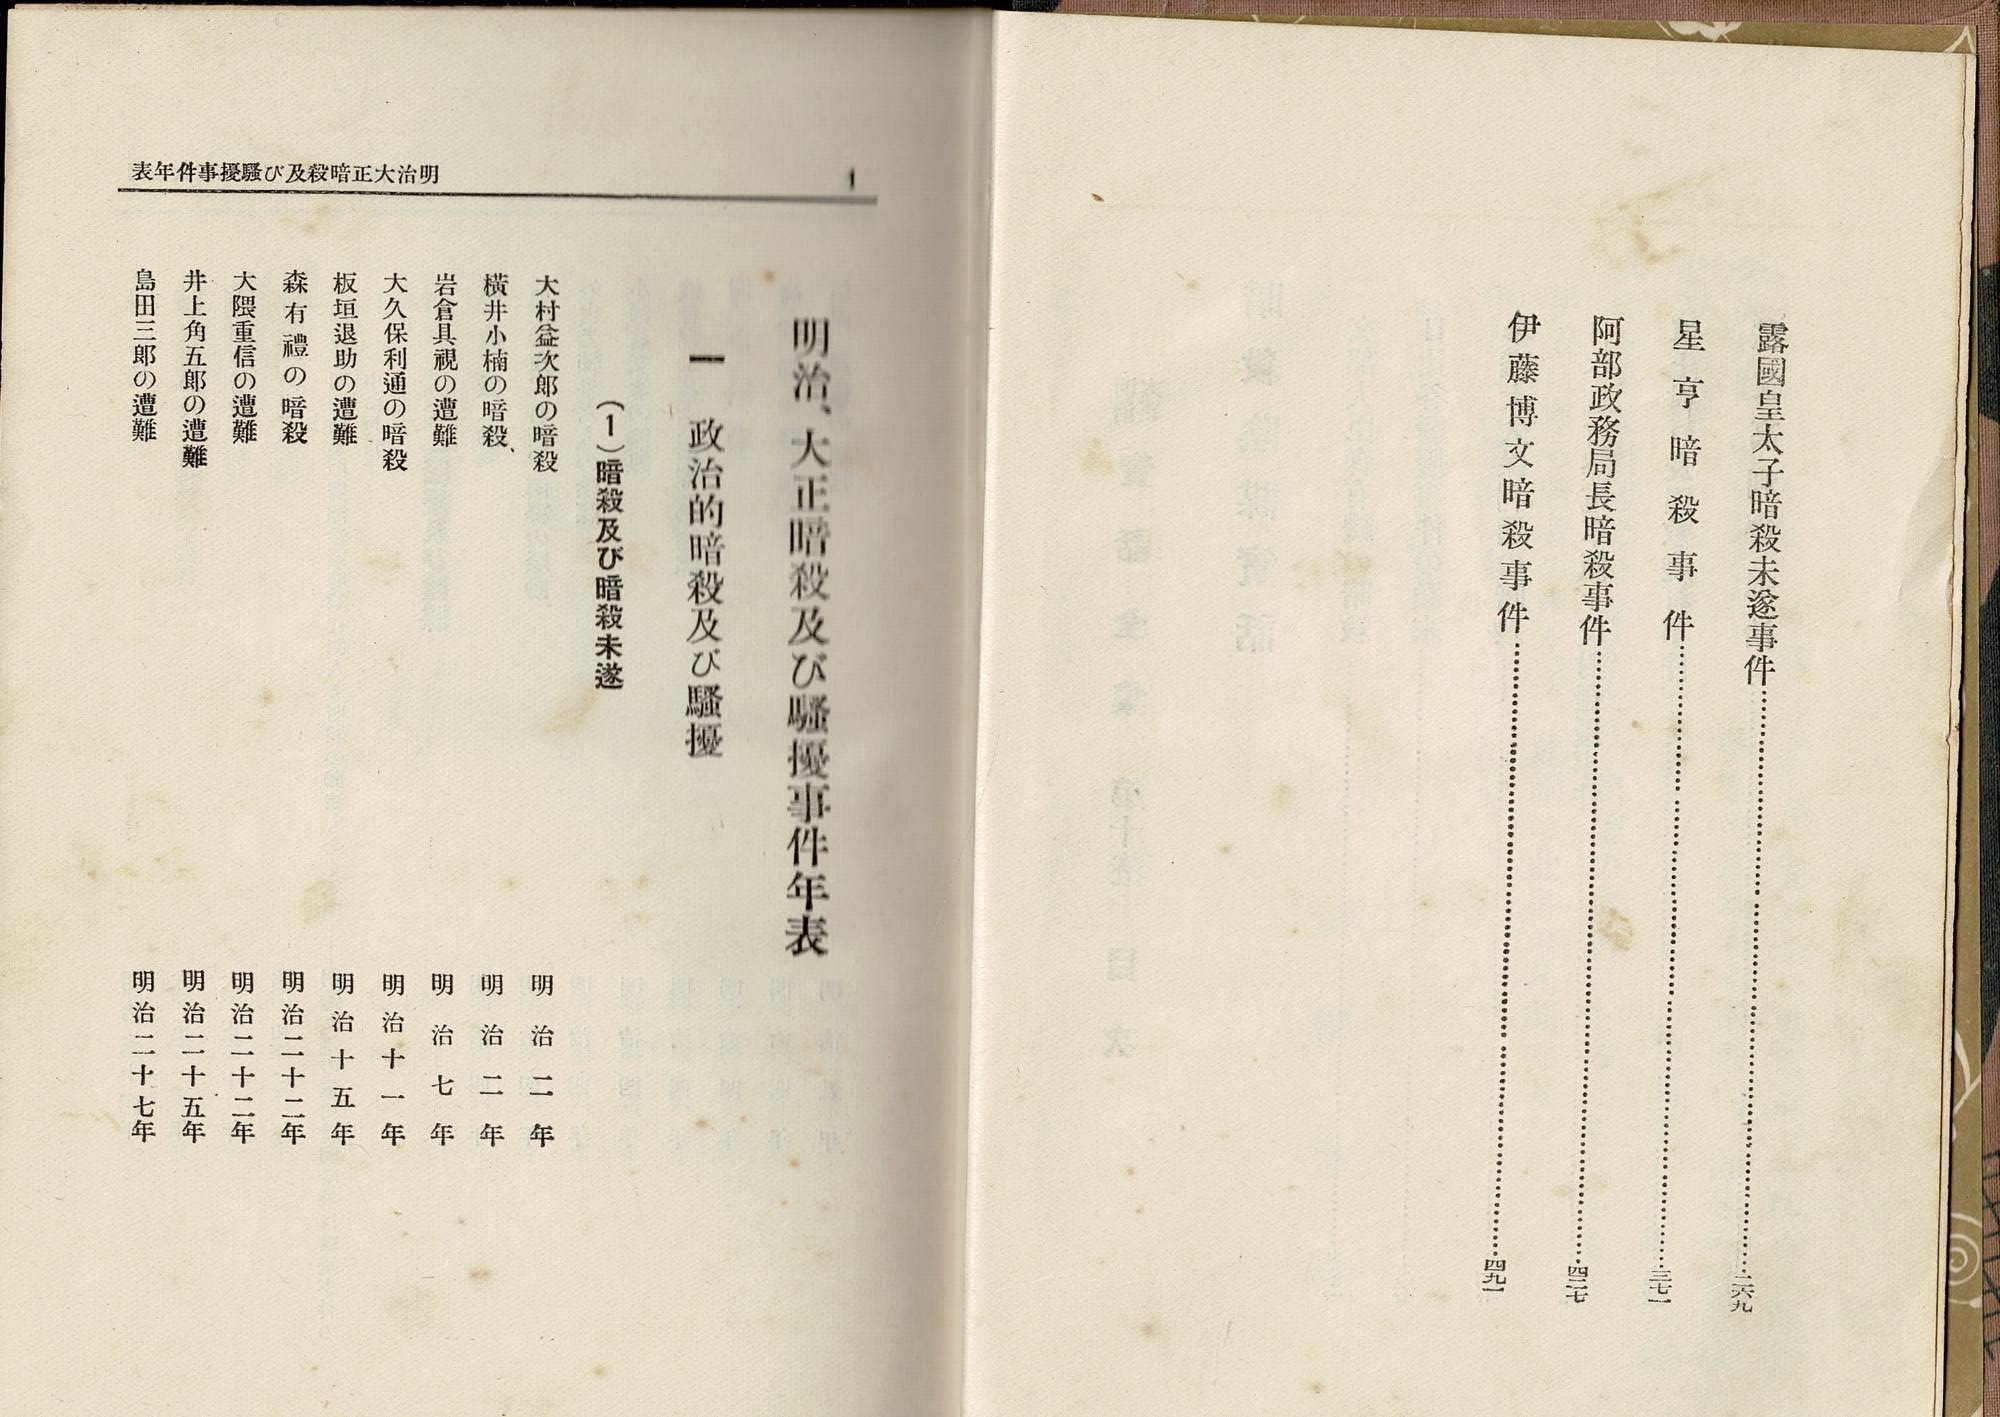 露國皇太子暗殺未遂事件…………二六九
星亨暗殺事件…………三七一
阿部政務局長暗殺事件…………四二七
伊藤博文暗殺事件…………四九一
明治大正暗殺及び騷擾事件年表
1
明治、大正暗殺及び騷擾事件年表
一 政治的暗殺及び騷擾
（1）暗殺及び暗殺未遂
大村益次郎の暗殺 明治二年
橫井小楠の暗殺、 明治二年
岩倉具視の遭難 明治七年
大久保利通の暗殺 明治十一年
板垣退助の遭難 明治十五年
森有禮の暗殺 明治二十二年
大隈重信の遭難 明治二十二年
井上角五郎の遭難 明治二十五年
島田三郎の遭難 明治二十七年